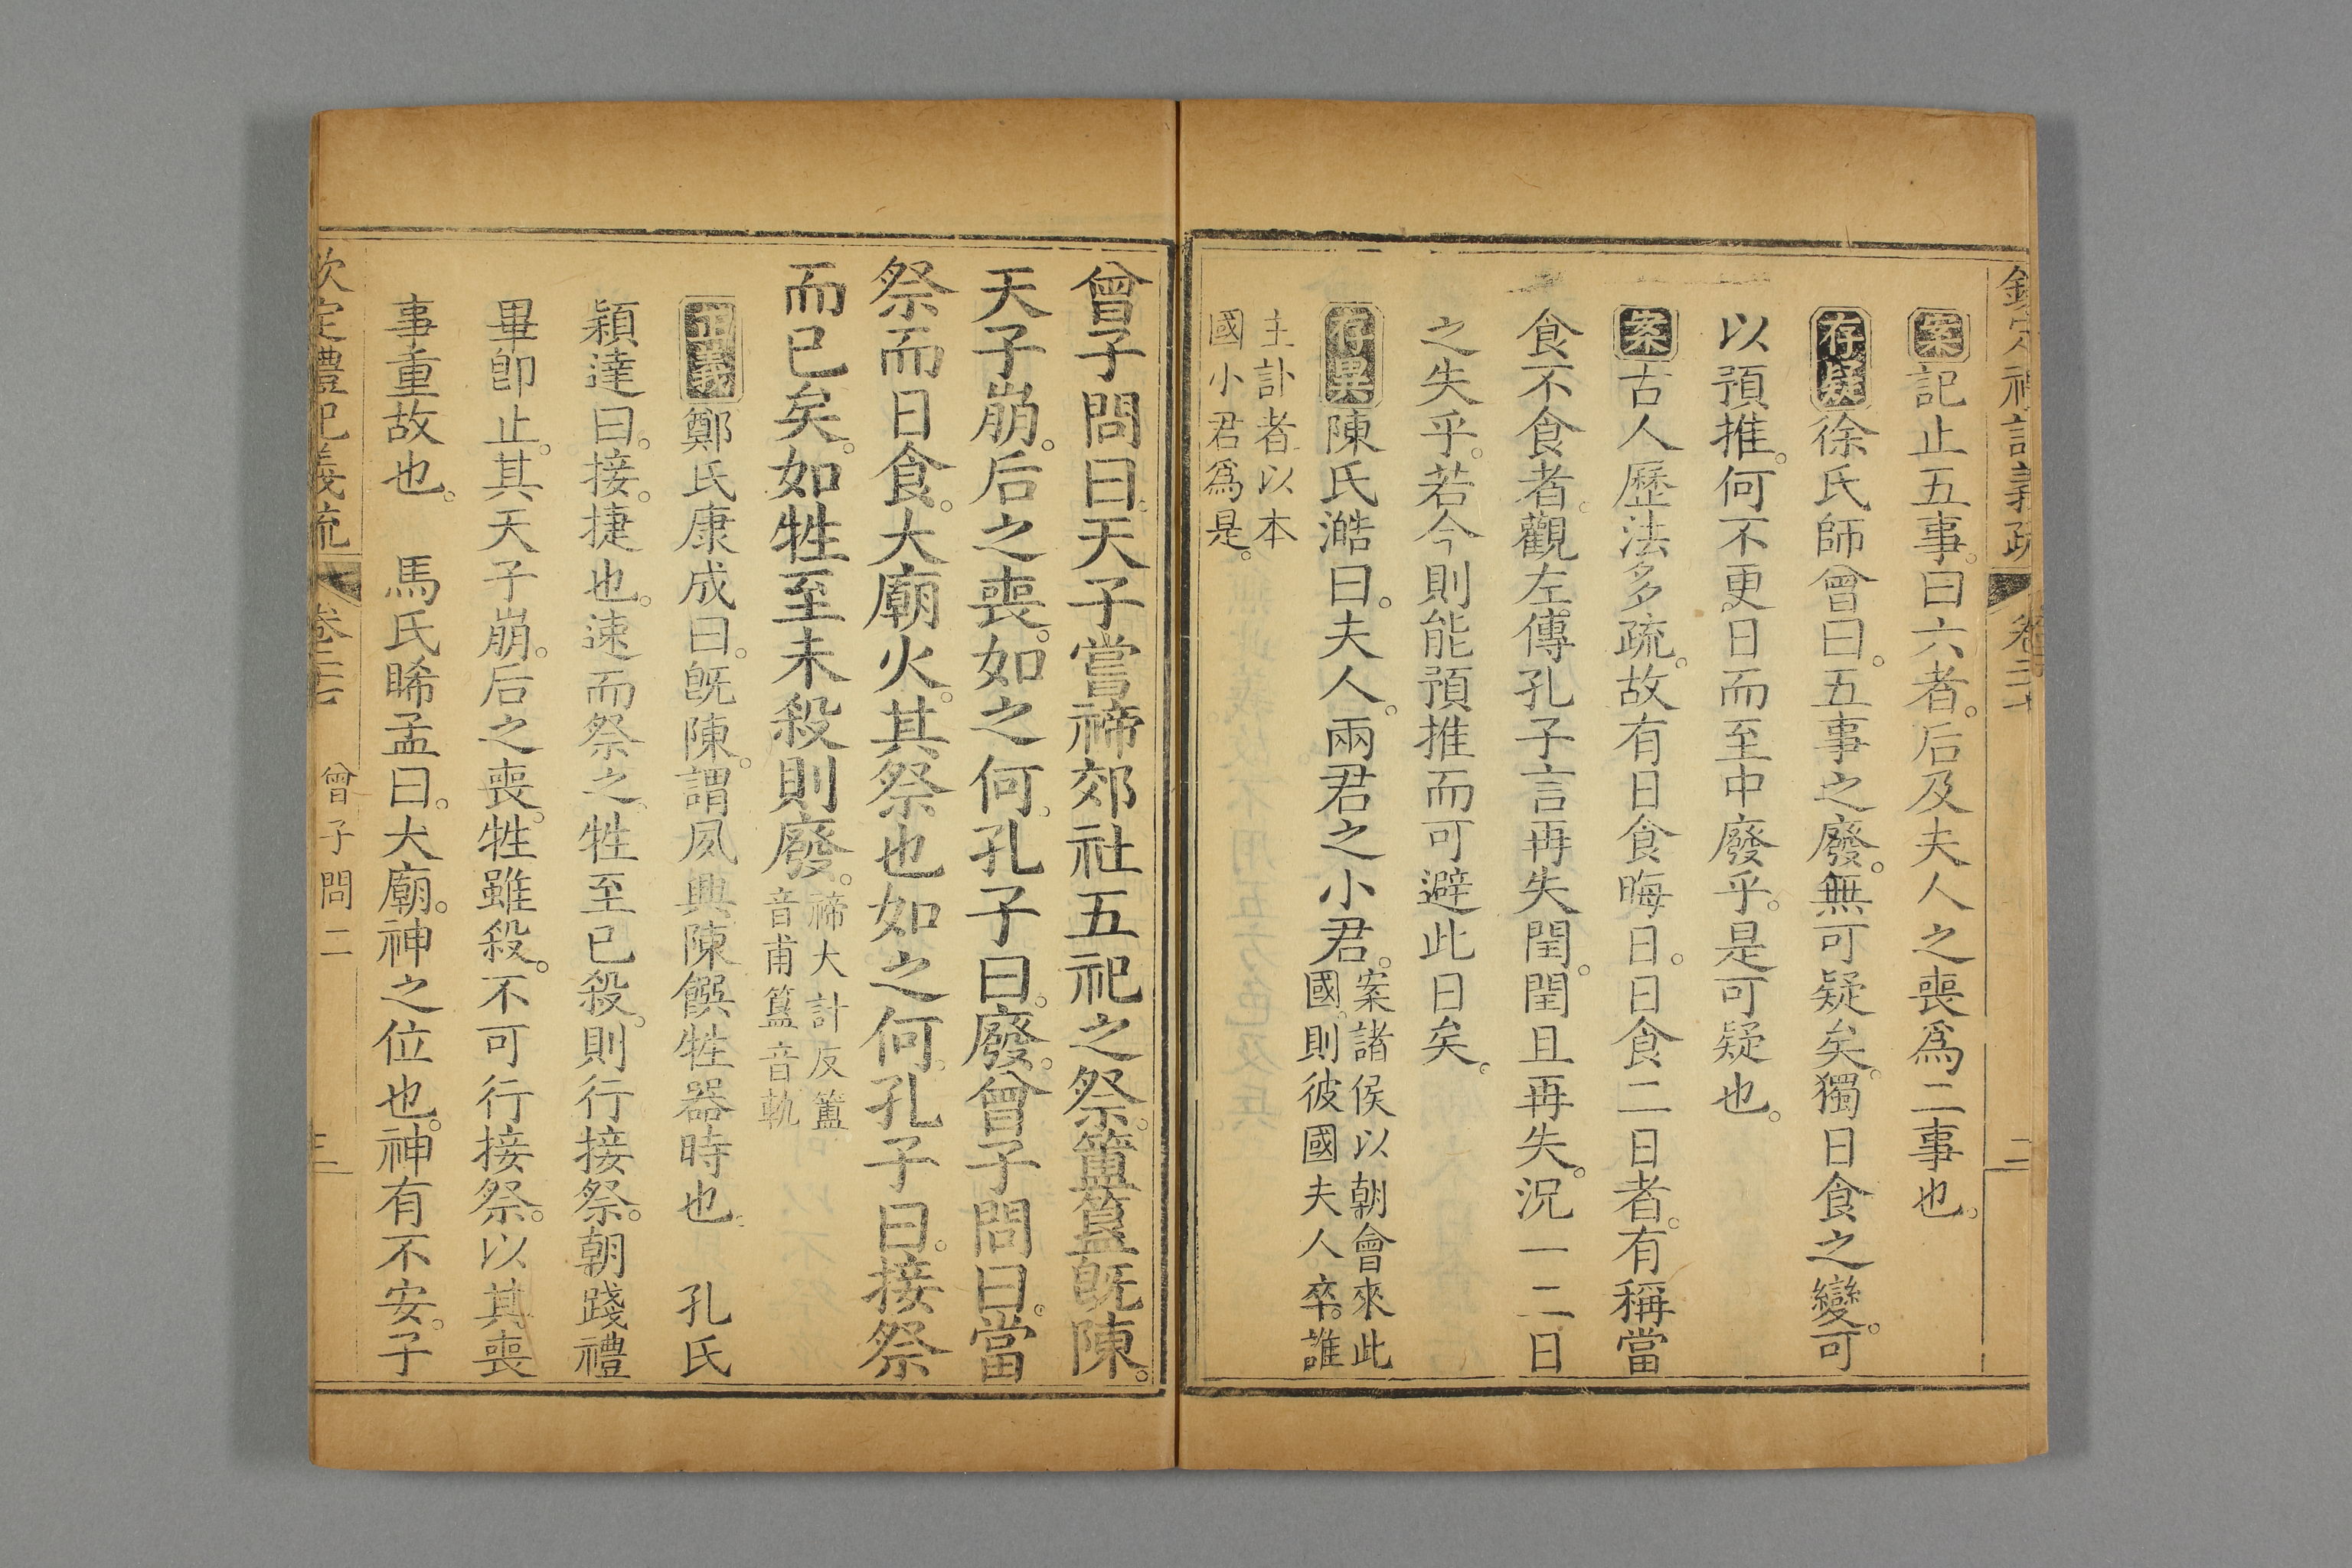 案記止五事。曰六者。后及夫人之喪爲二事也。
存疑徐氏師曾曰。五事之廢。無可疑矣。獨日食之變。可
以預推。何不更日而至中廢乎。是可疑也。
案古人歷法多疏。故有日食晦日。日食二日者。有稱當
食不食者。觀左傳孔子言再失閏。閏且再失。況一二日
之失乎。若今則能預推而可避此日矣。
存異陳氏澔曰。夫人。兩君之小君。案諸侯以朝會來此
國。則彼國夫人卒。誰
主訃者以本
國小君爲是。
曾子問曰。天子嘗禘郊社五祀之祭。簠簋旣陳。
天子崩。后之喪。如之何。孔子曰。廢。曾子問曰。當
祭而日食。大廟火。其祭也如之何。孔子曰。接祭
而已矣。如牲至未殺則廢。禘大計反簠
音甫簋音軌
正義鄭氏康成曰。旣陳。謂夙興陳饌牲器時也。 孔氏
穎達曰。接。捷也。速而祭之。牲至已殺。則行接祭。朝踐禮
畢卽止。其天子崩。后之喪。牲雖殺。不可行接祭。以其喪
事重故也。 馬氏睎孟曰。大廟。神之位也。神有不安。子
欽定禮記義疏
卷二十七
曾子問二
三